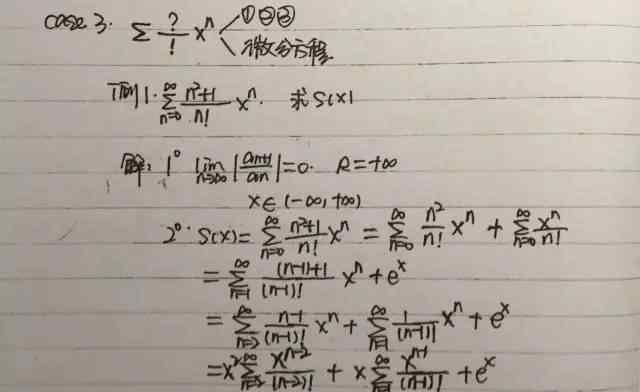 case 3. Σ ?/! xⁿ < ①②③
微分方程
例1. Σ_{n=0}^{∞} (n²+1)/n! xⁿ. 求S(x)
解: 1° lim_{n→∞} |a_{n+1}/a_n| = 0. R=+∞
x∈(-∞,+∞)
2°. S(x) = Σ_{n=0}^{∞} (n²+1)/n! xⁿ = Σ_{n=0}^{∞} n²/n! xⁿ + Σ_{n=0}^{∞} xⁿ/n!
= Σ_{n=1}^{∞} ((n-1)+1)/(n-1)! xⁿ + eˣ
= Σ_{n=2}^{∞} (n-1)/(n-1)! xⁿ + Σ_{n=1}^{∞} 1/(n-1)! xⁿ + eˣ
= x² Σ_{n=2}^{∞} xⁿ⁻²/(n-2)! + x Σ_{n=1}^{∞} xⁿ⁻¹/(n-1)! + eˣ